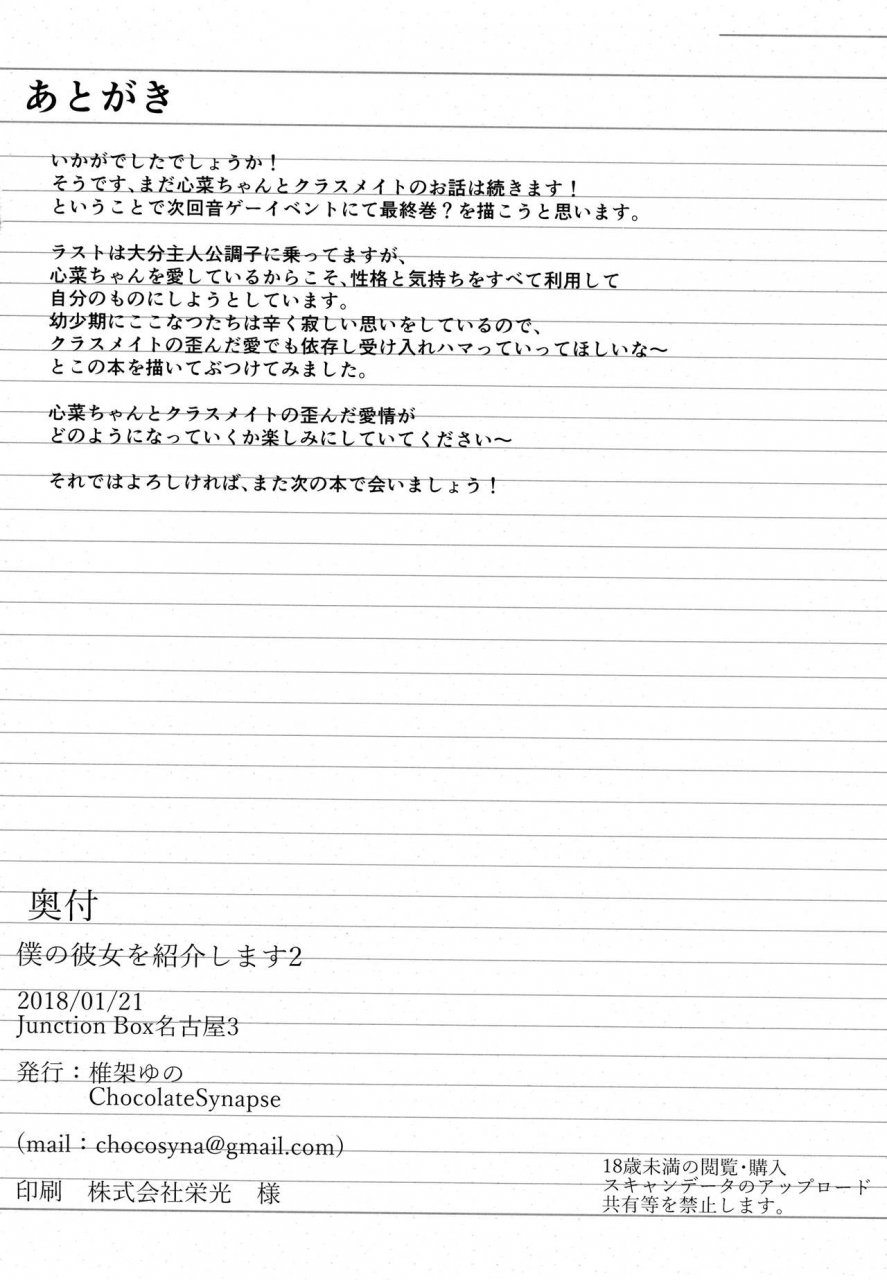 あとがき
いかがでしたでしょうか！
そうです、まだ心菜ちゃんとクラスメイトのお話は続きます！
ということで次回音ゲーイベントにて最終巻？を描こうと思います。
ラストは大分主人公調子に乗ってますが、
心菜ちゃんを愛しているからこそ、性格と気持ちをすべて利用して
自分のものにしようとしています。
幼少期にここなつたちは辛く寂しい思いをしているので、
クラスメイトの歪んだ愛でも依存し受け入れハマっていってほしいな～
とこの本を描いてぶつけてみました。
心菜ちゃんとクラスメイトの歪んだ愛情が
どのようになっていくか楽しみにしていてください～
それではよろしければ、また次の本で会いましょう！
奥付
僕の彼女を紹介します2
2018/01/21
Junction Box名古屋3
発行：椎架ゆの
ChocolateSynapse
(mail：chocosyna@gmail.com)
印刷　株式会社栄光　様
18歳未満の閲覧・購入
スキャンデータのアップロード
共有等を禁止します。